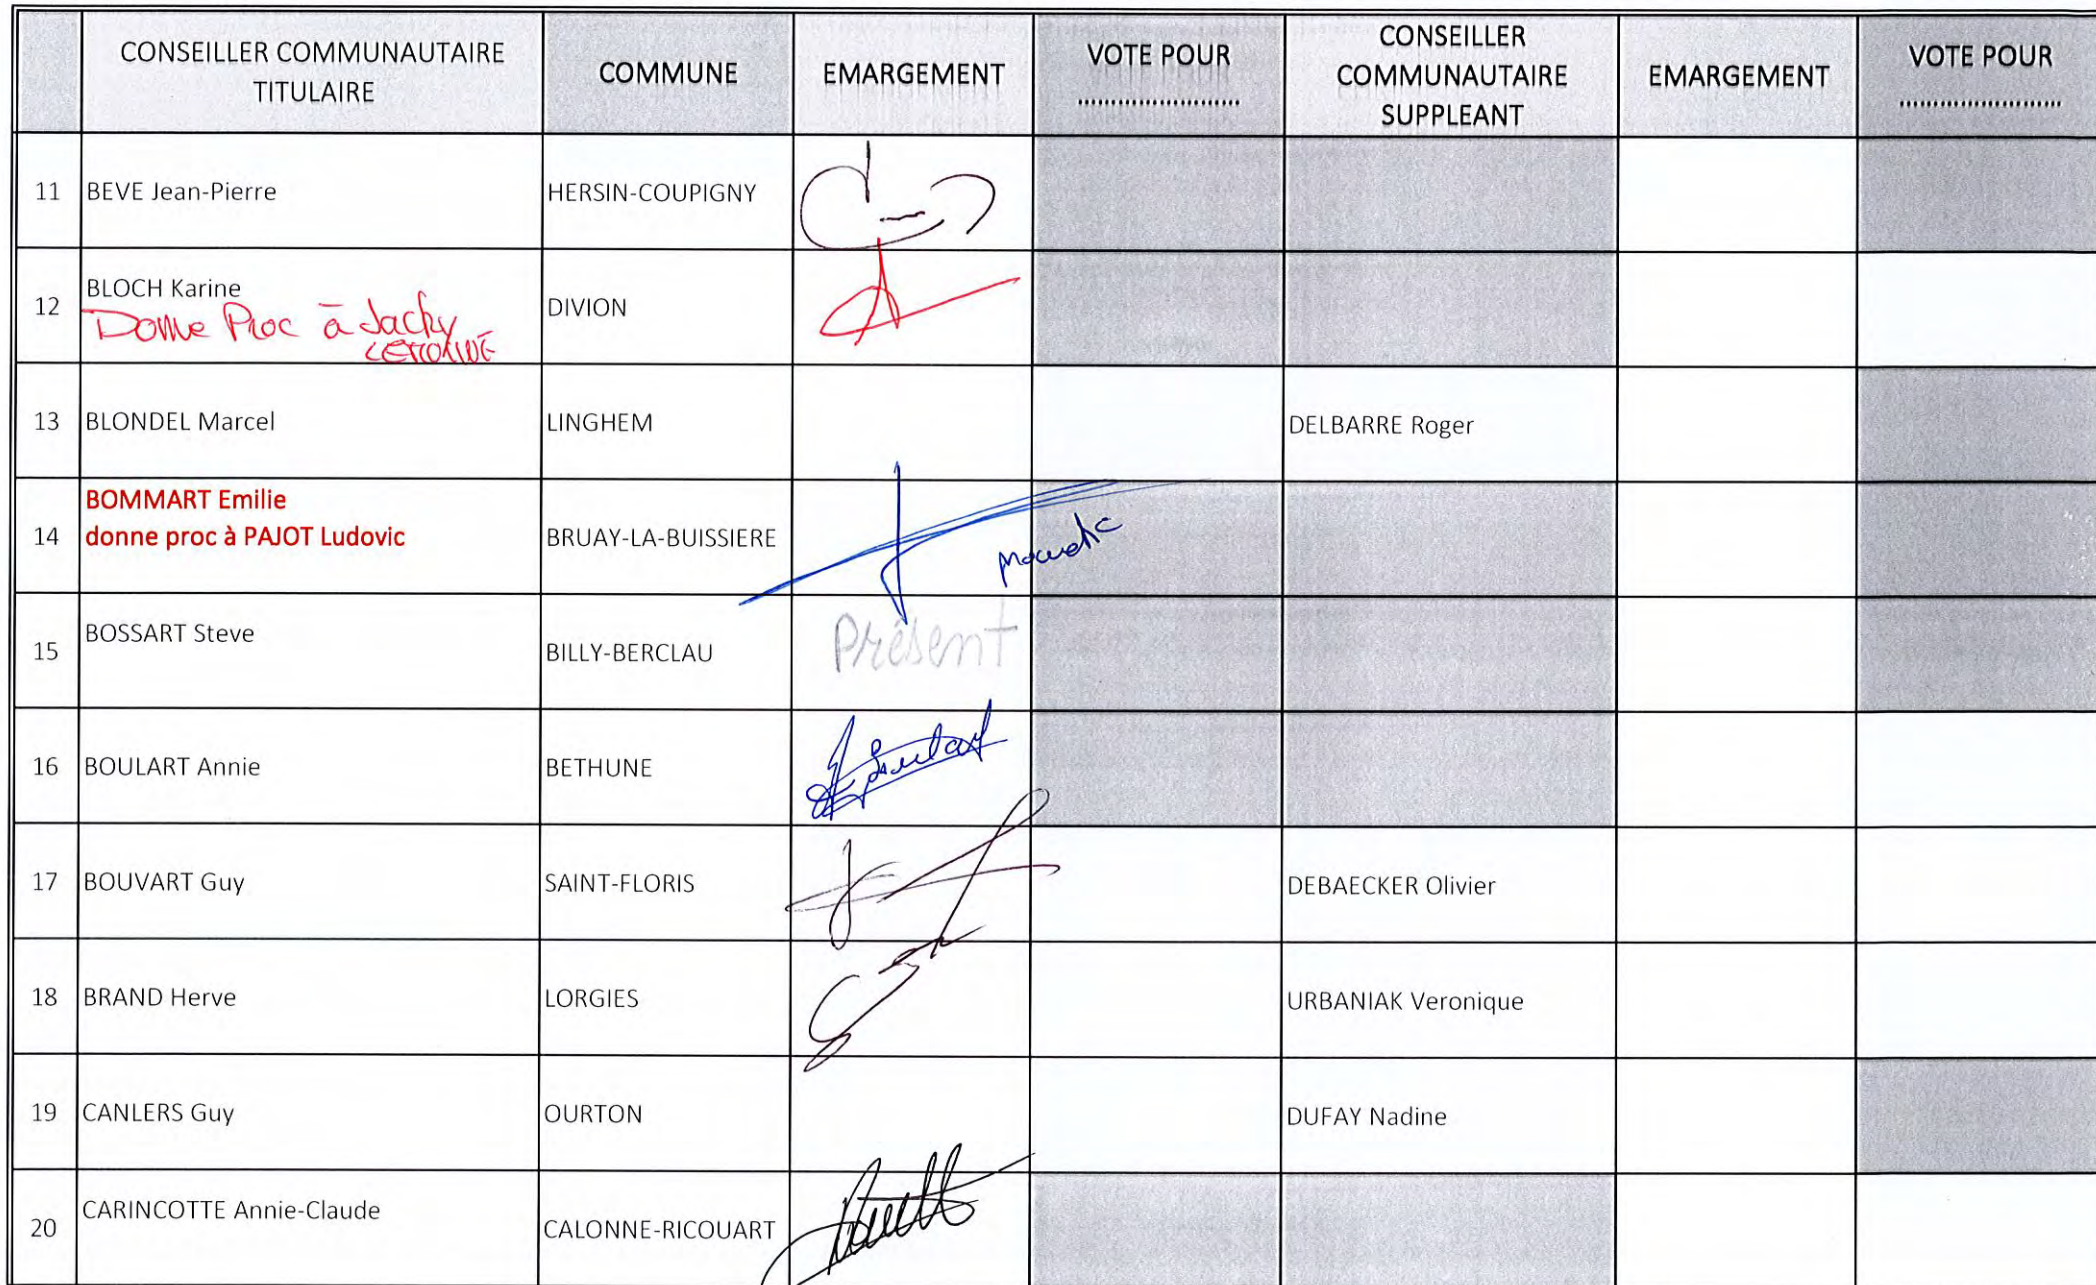 CONSEILLER COMMUNAUTAIRE
TITULAIRE
COMMUNE
EMARGEMENT
VOTE POUR
........................
CONSEILLER
COMMUNAUTAIRE
SUPPLEANT
EMARGEMENT
VOTE POUR
........................
11 BEVE Jean-Pierre HERSIN-COUPIGNY
12 BLOCH Karine DIVION
Donne Proc à Jacky
LEMOINE
13 BLONDEL Marcel LINGHEM DELBARRE Roger
BOMMART Emilie
14 donne proc à PAJOT Ludovic BRUAY-LA-BUISSIERE
15 BOSSART Steve BILLY-BERCLAU Présent
16 BOULART Annie BETHUNE
17 BOUVART Guy SAINT-FLORIS DEBAECKER Olivier
18 BRAND Herve LORGIES URBANIAK Veronique
19 CANLERS Guy OURTON DUFAY Nadine
20 CARINCOTTE Annie-Claude CALONNE-RICOUART